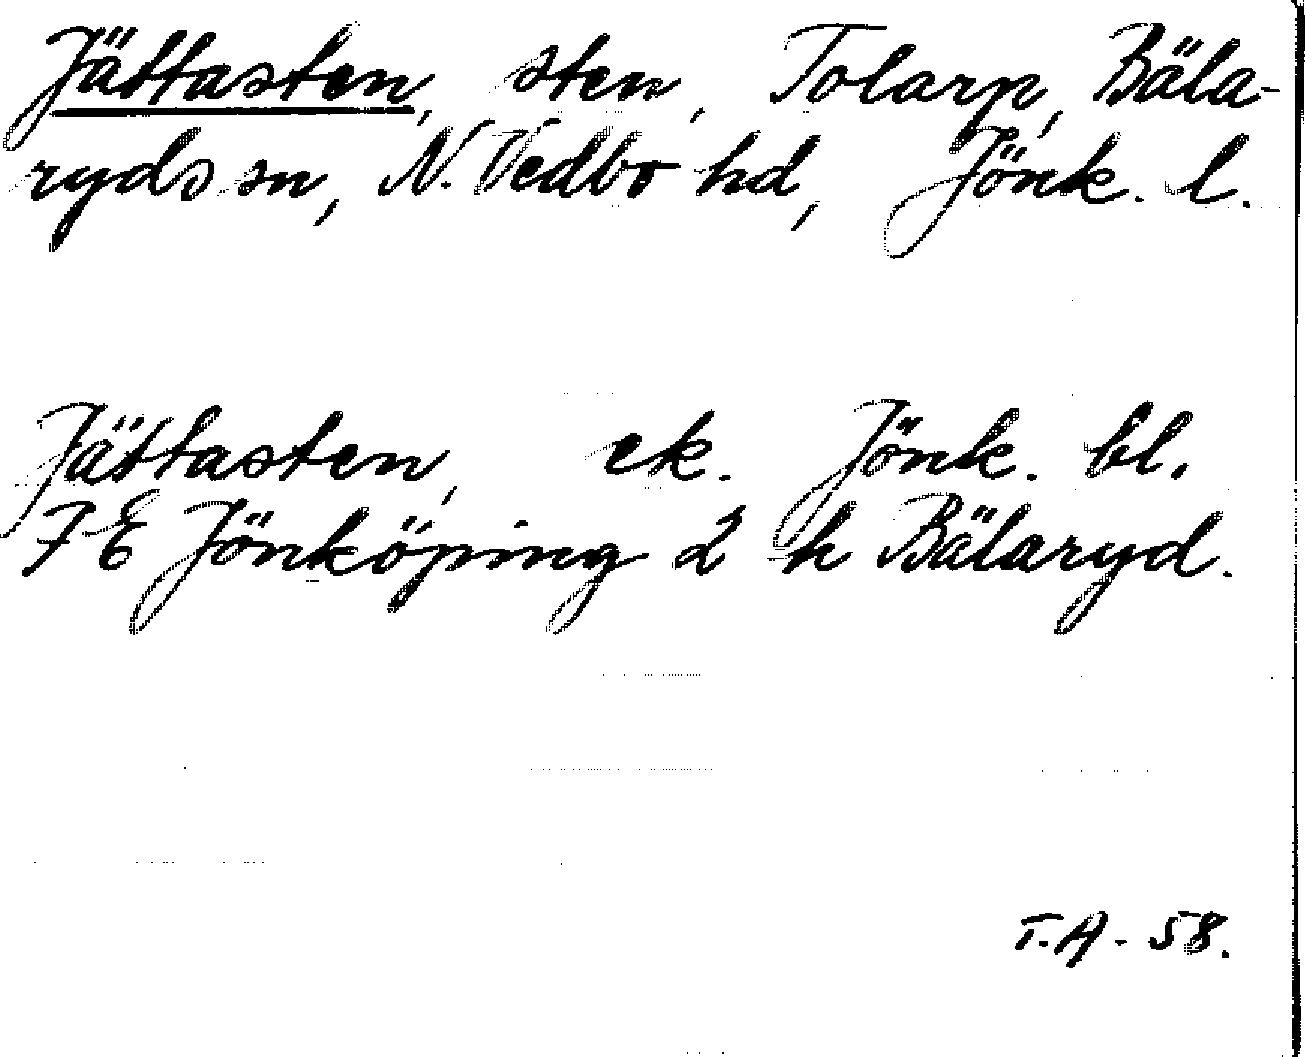 Jättasten, sten, Tolarp, Bäla-
ryds sn, N. Vedbo hd, Jönk. l.
Jättasten, ek. Jönk. bl.
7 E Jönköping 2 h Bälaryd.
T.A. 58.